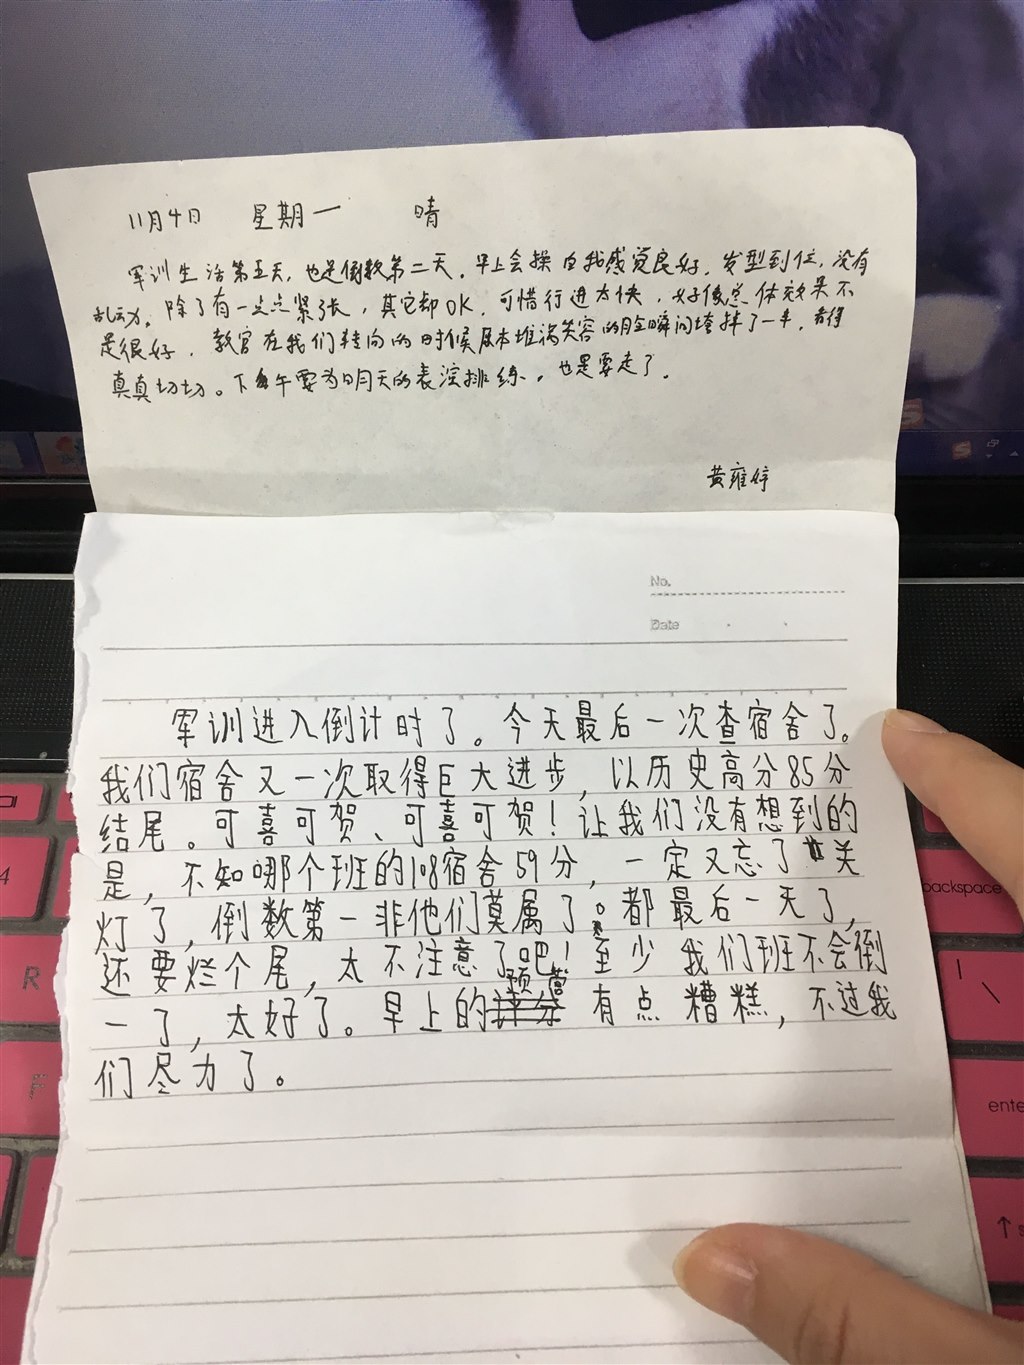 11月4日 星期一 晴
军训生活第五天,也是倒数第二天。早上会操自我感觉良好,发型到位,没有
乱动。除了有一点点紧张,其它都OK。可惜行进太快,好像总体效果不
是很好,教官在我们转向的时候原本堆满笑容的脸瞬间垮掉了一半,看得
真真切切。下午要为明天的表演排练。也是要走了。
黄雍婷
No.
Date
军训进入倒计时了。今天最后一次查宿舍了。
我们宿舍又一次取得巨大进步,以历史高分85分
结尾。可喜可贺、可喜可贺!让我们没有想到的
是,不知哪个班的108宿舍59分,一定又忘了关
灯了,倒数第一非他们莫属了。都最后一天了,
还要烂个尾,太不注意了吧!至少我们班不会倒
一了,太好了。早上的预营有点糟糕,不过我
们尽力了。
R
F
4
backspace
\
enter